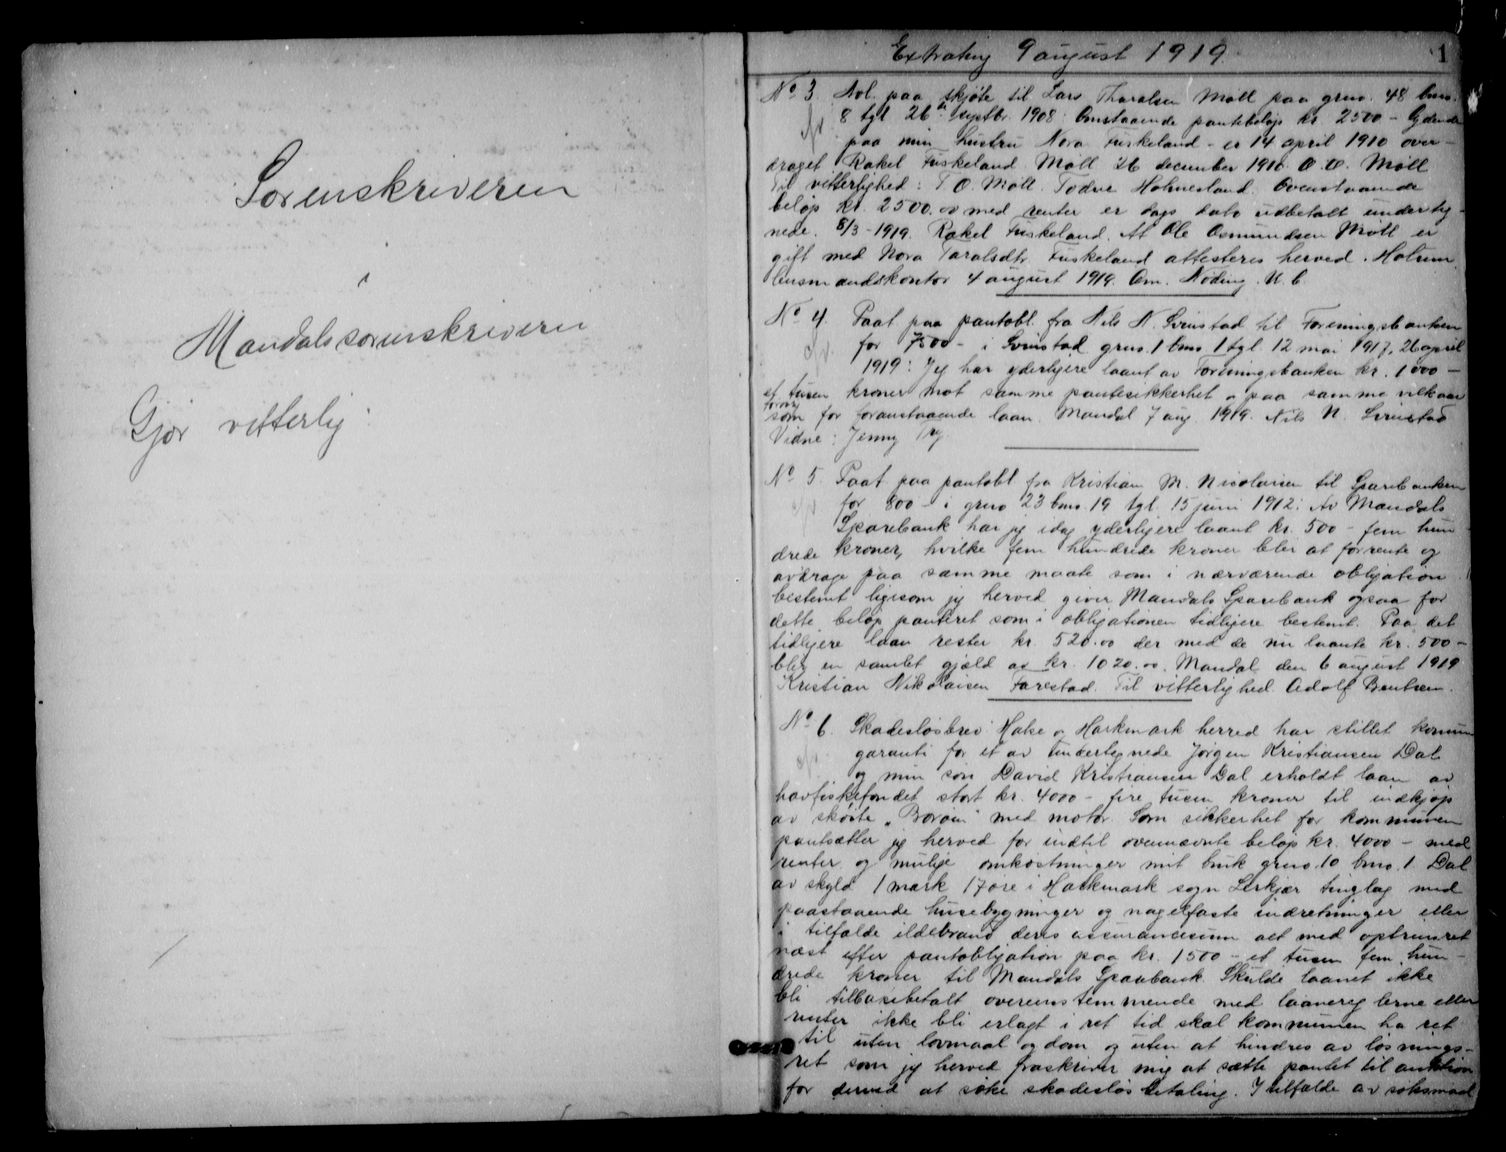 Sorenskriveren
i
Mandals sorenskriveri
Gjør vitterlig:
Extrating 9 august 1919
1
No 3. Avl. paa skjøte til Lars Tharalsen Møll paa grno. 48 bno.
8 tgl 26de septbr. 1908: Omstaaende pantebeløp kr. 2500 - lydende
paa min hustru Nora Fuskeland - er 14 april 1910 over-
draget Rakel Fuskeland Møll 26 december 1910 O. O. Møll
Til vitterlighed: T. O. Møll. Todne Holmesland. Ovenstaaende
beløp kr. 2500.00 med renter er dags dato utbetalt underteg-
nede. 8/3-1919. Rakel Fuskeland. At Ole Osmundsen Møll er
gift med Nora Taralsdtr. Fuskeland attesteres herved. Holum
lensmandskontor 4 august 1919. Om. Nøding. U. C.
No 4. Paat paa pantobl. fra Nils N. Svinstad til Foreningsbanken
for 7500 - i Svinstad grno. 1 bno 1 tgl. 12 mai 1917, 26 april
1919: Jeg har yderligere laant av Foreningsbanken kr. 1000 -
et tusen kroner mot samme pantesikkerhet o paa samme vilkaar
som for foranstaaende laan. Mandal 7 aug. 1919. Nils N. Svinstad
Vidne: Jenny
No 5. Paat paa pantobl fra Kristian M. Nicolaisen til Sparebanken
for 800 - i grno 23 bno. 19 tgl. 15 juni 1912: Av Mandals
Sparebank har jeg idag yderligere laant kr. 500 - fem hun-
drede kroner, hvilke fem hundrede kroner blir at forrente og
avdrage paa samme maate som i nærværende obligation
bestemt ligesom jeg herved giver Mandals Sparebank ogsaa for
dette beløp panteret som i obligationen tidligere bestemt. Paa det
tidligere laan rester kr. 520.00 der med de nu laante kr. 500 -
blir en samlet gjæld av kr. 1020.00. Mandal den 6 august 1919
Kristian Nikolaisen Farestad. Til vitterlighed Adolf Bentsen.
No 6. Skadesløsbrev Halse o Harkmark herred har stillet kommun
garanti for et av undertegnede Jørgen Kristiansen Dal
og min søn David Kristiansen Dal erholdt laan av
havfiskefondet stort kr. 4000 - fire tusen kroner til indkjøp
av skøite "Borøin" med motor. Som sikkerhet for kommunen
pantsætter jeg herved for indtil ovennævnte beløp kr. 4000 - med
renter og mulige omkostninger mit bruk grno. 10 bno. 1 Dal
av skyld 1 mark 17 øre i Halkmark sogn Lerkjær tinglag med
paastaaende husebygninger og nagelfaste indretninger eller
i tilfælde ildebrand deres assurancesum alt med optrinsret
næst efter pantobligation paa kr. 1500 - et tusen fem hun-
drede kroner til Mandals Sparebank. Skulde laanet ikke
bli tilbakebetalt overensstemmende med laanereglerne eller
renter ikke bli erlagt i ret tid skal kommunen ha ret
til uten lovmaal og dom og uten at hindres av løsnings-
ret som jeg herved fraskriver mig at sætte pantet til auktion
for derved at søke skadesløs betaling. I tilfælde av søksmaal